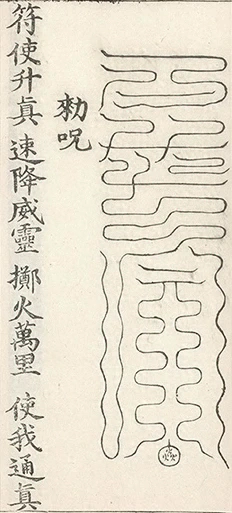 勑呪
符使升眞 速降威靈 擲火萬里 使我通眞